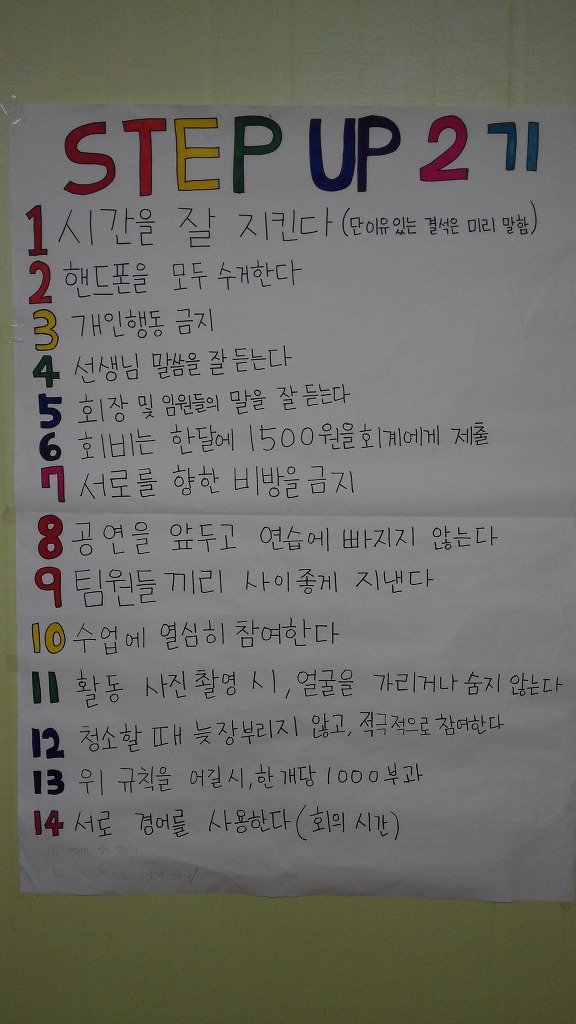 STEP UP 2기
1 시간을 잘 지킨다 (단이유있는 결석은 미리 말함)
2 핸드폰을 모두 수거한다
3 개인행동 금지
4 선생님 말씀을 잘 듣는다
5 회장 및 임원들의 말을 잘 듣는다
6 회비는 한달에 1500원을회계에게 제출
7 서로를 향한 비방을금지
8 공연을 앞두고 연습에 빠지지 않는다
9 팀원들끼리 사이좋게 지낸다
10 수업에 열심히 참여한다
11 활동 사진 촬영 시, 얼굴을 가리거나 숨지 않는다
12 청소할 때 늦장부리지 않고, 적극적으로 참여한다
13 위 규칙을 어길시, 한개당 1000부과
14 서로 경어를 사용한다 (회의 시간)